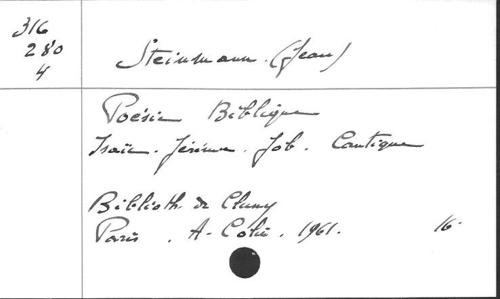 316
280
4
Steinmann. (Jean)
Poésie Biblique
Isaïe. Jérémie. Job. Cantique
Biblioth. de Cluny
Paris. A. Colin. 1961. 16.